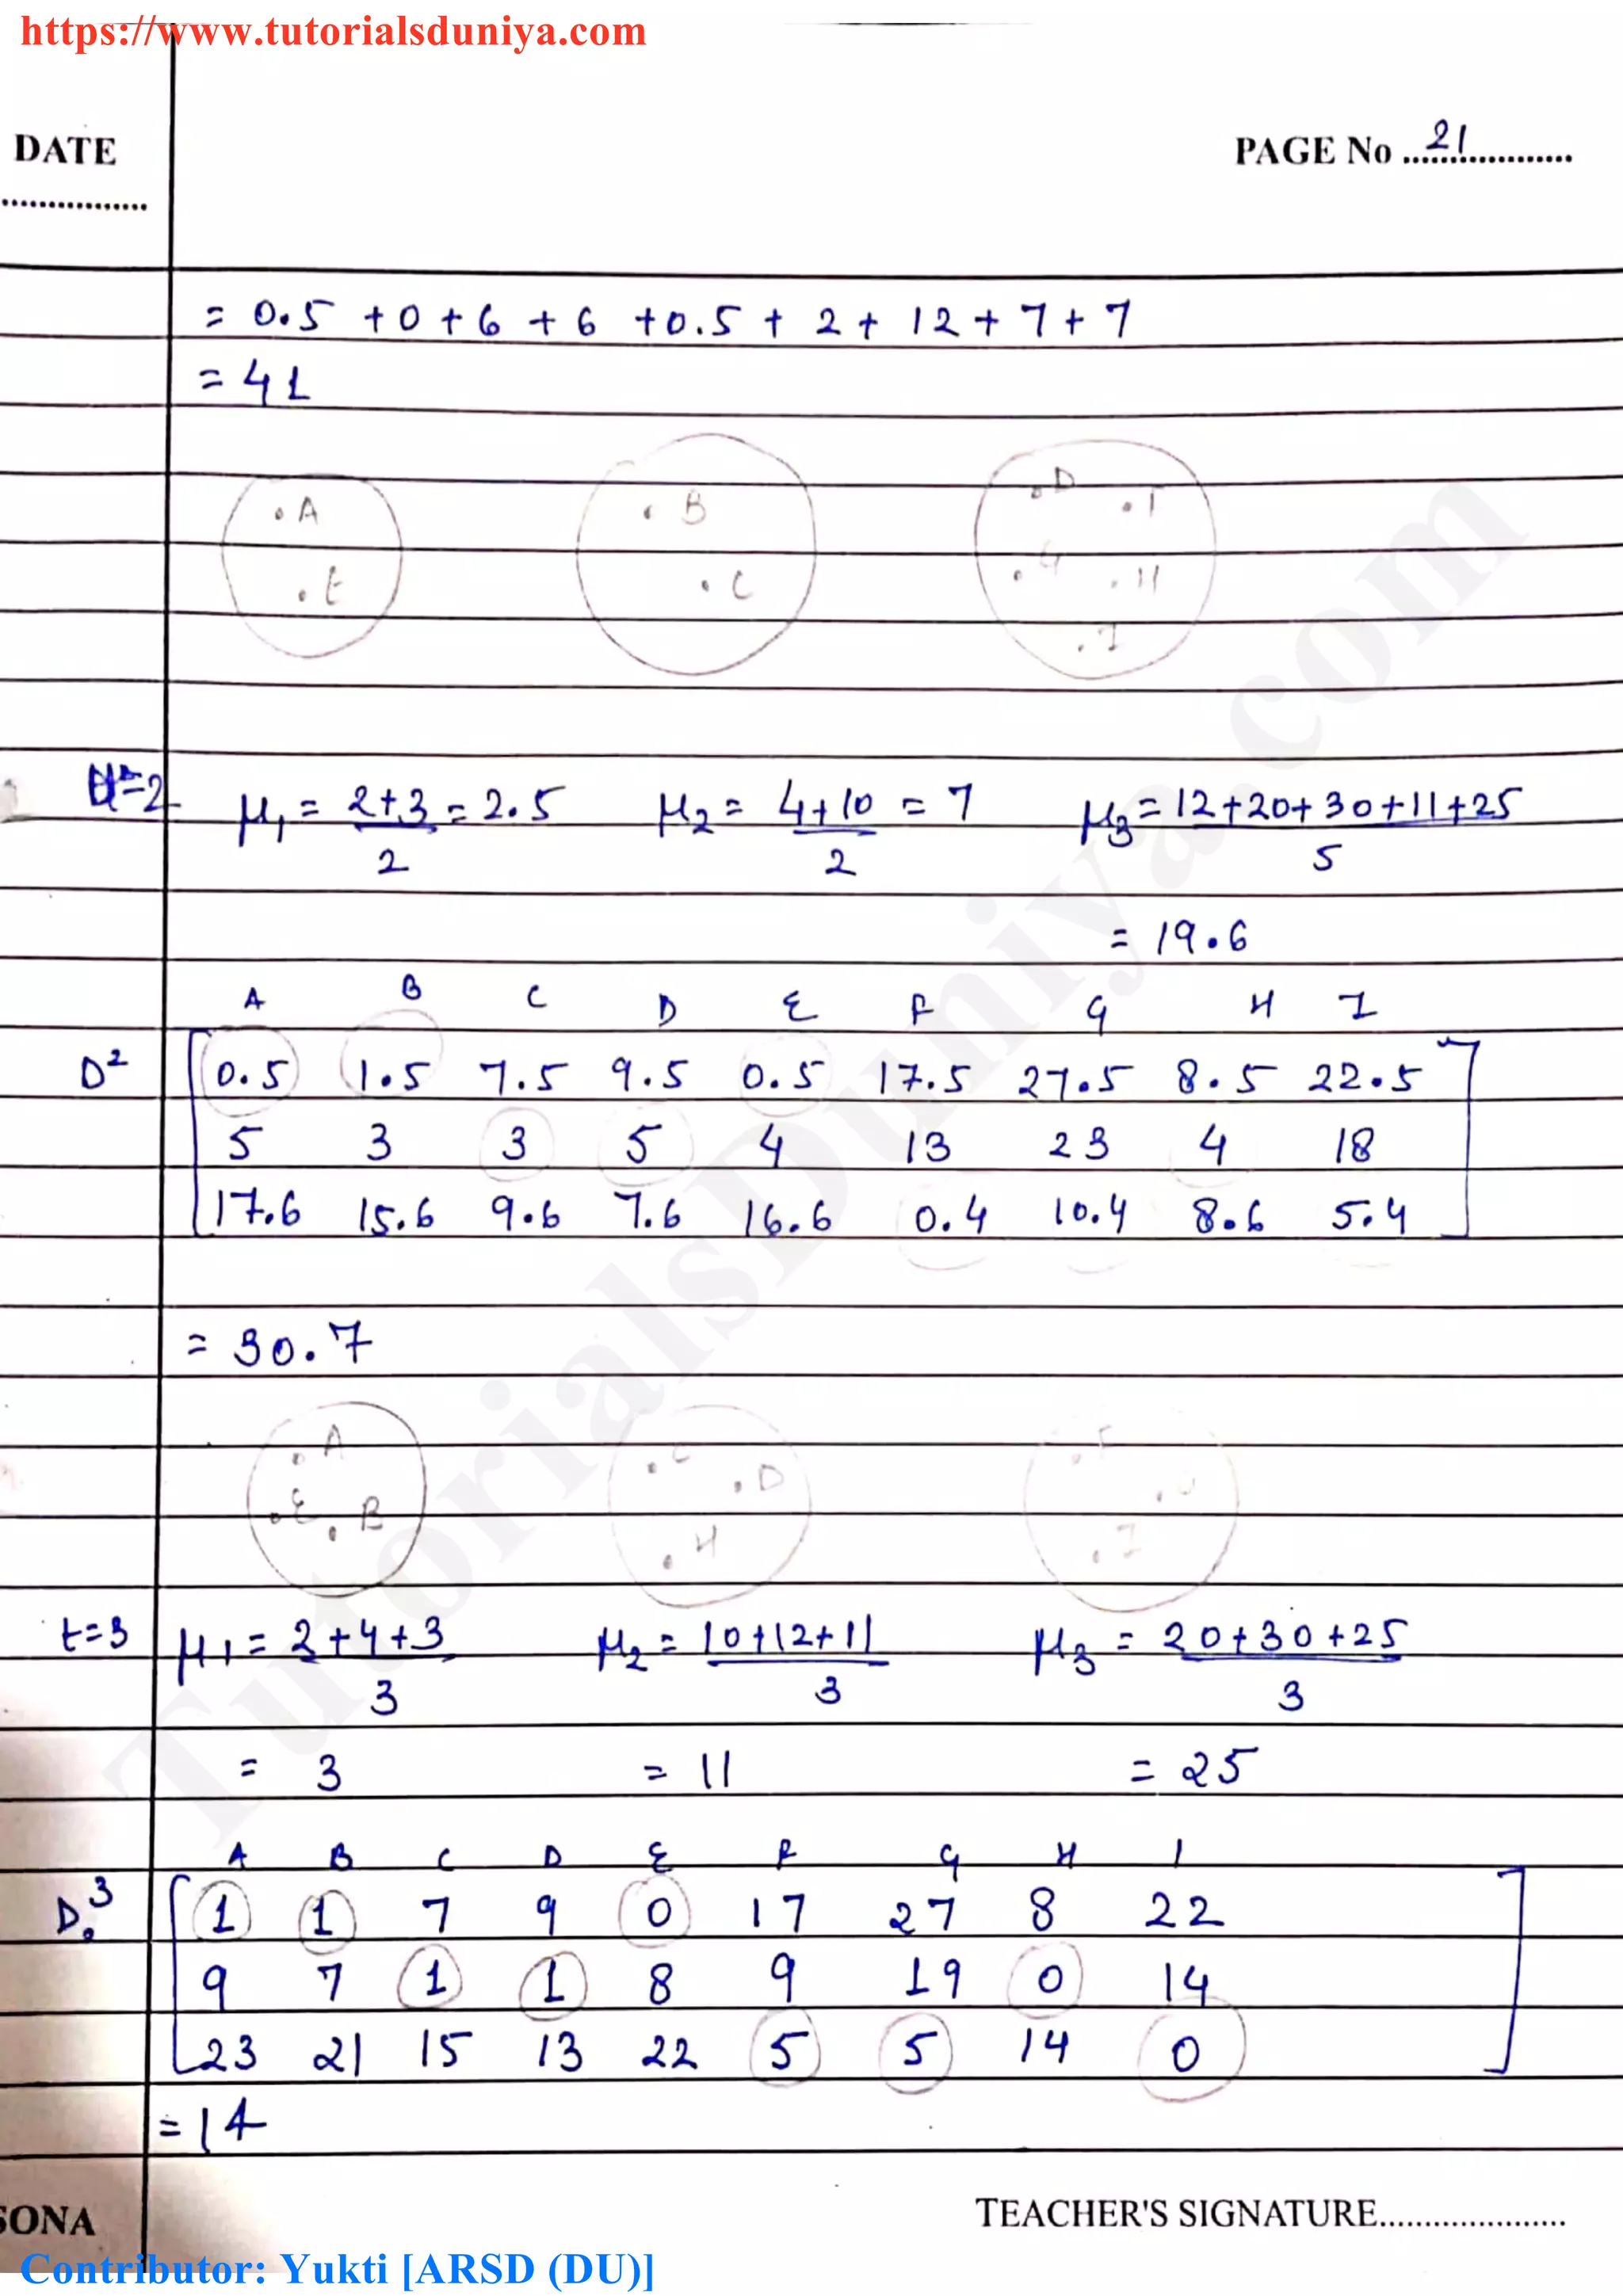 https://www.tutorialsduniya.com
DATE
PAGE No 21
= 0.5 + 0 + 6 + 6 + 0.5 + 2 + 12 + 7 + 7
= 41
A B D F
E C G H
I
t=2 μ1 = 2+3/2 = 2.5 μ2 = 4+10/2 = 7 μ3 = 12+20+30+11+25/5
= 19.6
A B C D E F G H I
D² 0.5 1.5 7.5 9.5 0.5 17.5 27.5 8.5 22.5
5 3 3 5 4 13 23 4 18
17.6 15.6 9.6 7.6 16.6 0.4 10.4 8.6 5.4
= 30.7
A C D F
E B H I
t=3 μ1 = 2+4+3/3 μ2 = 10+12+11/3 μ3 = 20+30+25/3
= 3 = 11 = 25
A B C D E F G H I
D.³ 1 1 7 9 0 17 27 8 22
9 7 1 1 8 9 19 0 14
23 21 15 13 22 5 5 14 0
= 14
SONA
TEACHER'S SIGNATURE
Contributor: Yukti [ARSD (DU)]
TutorialsDuniya.com